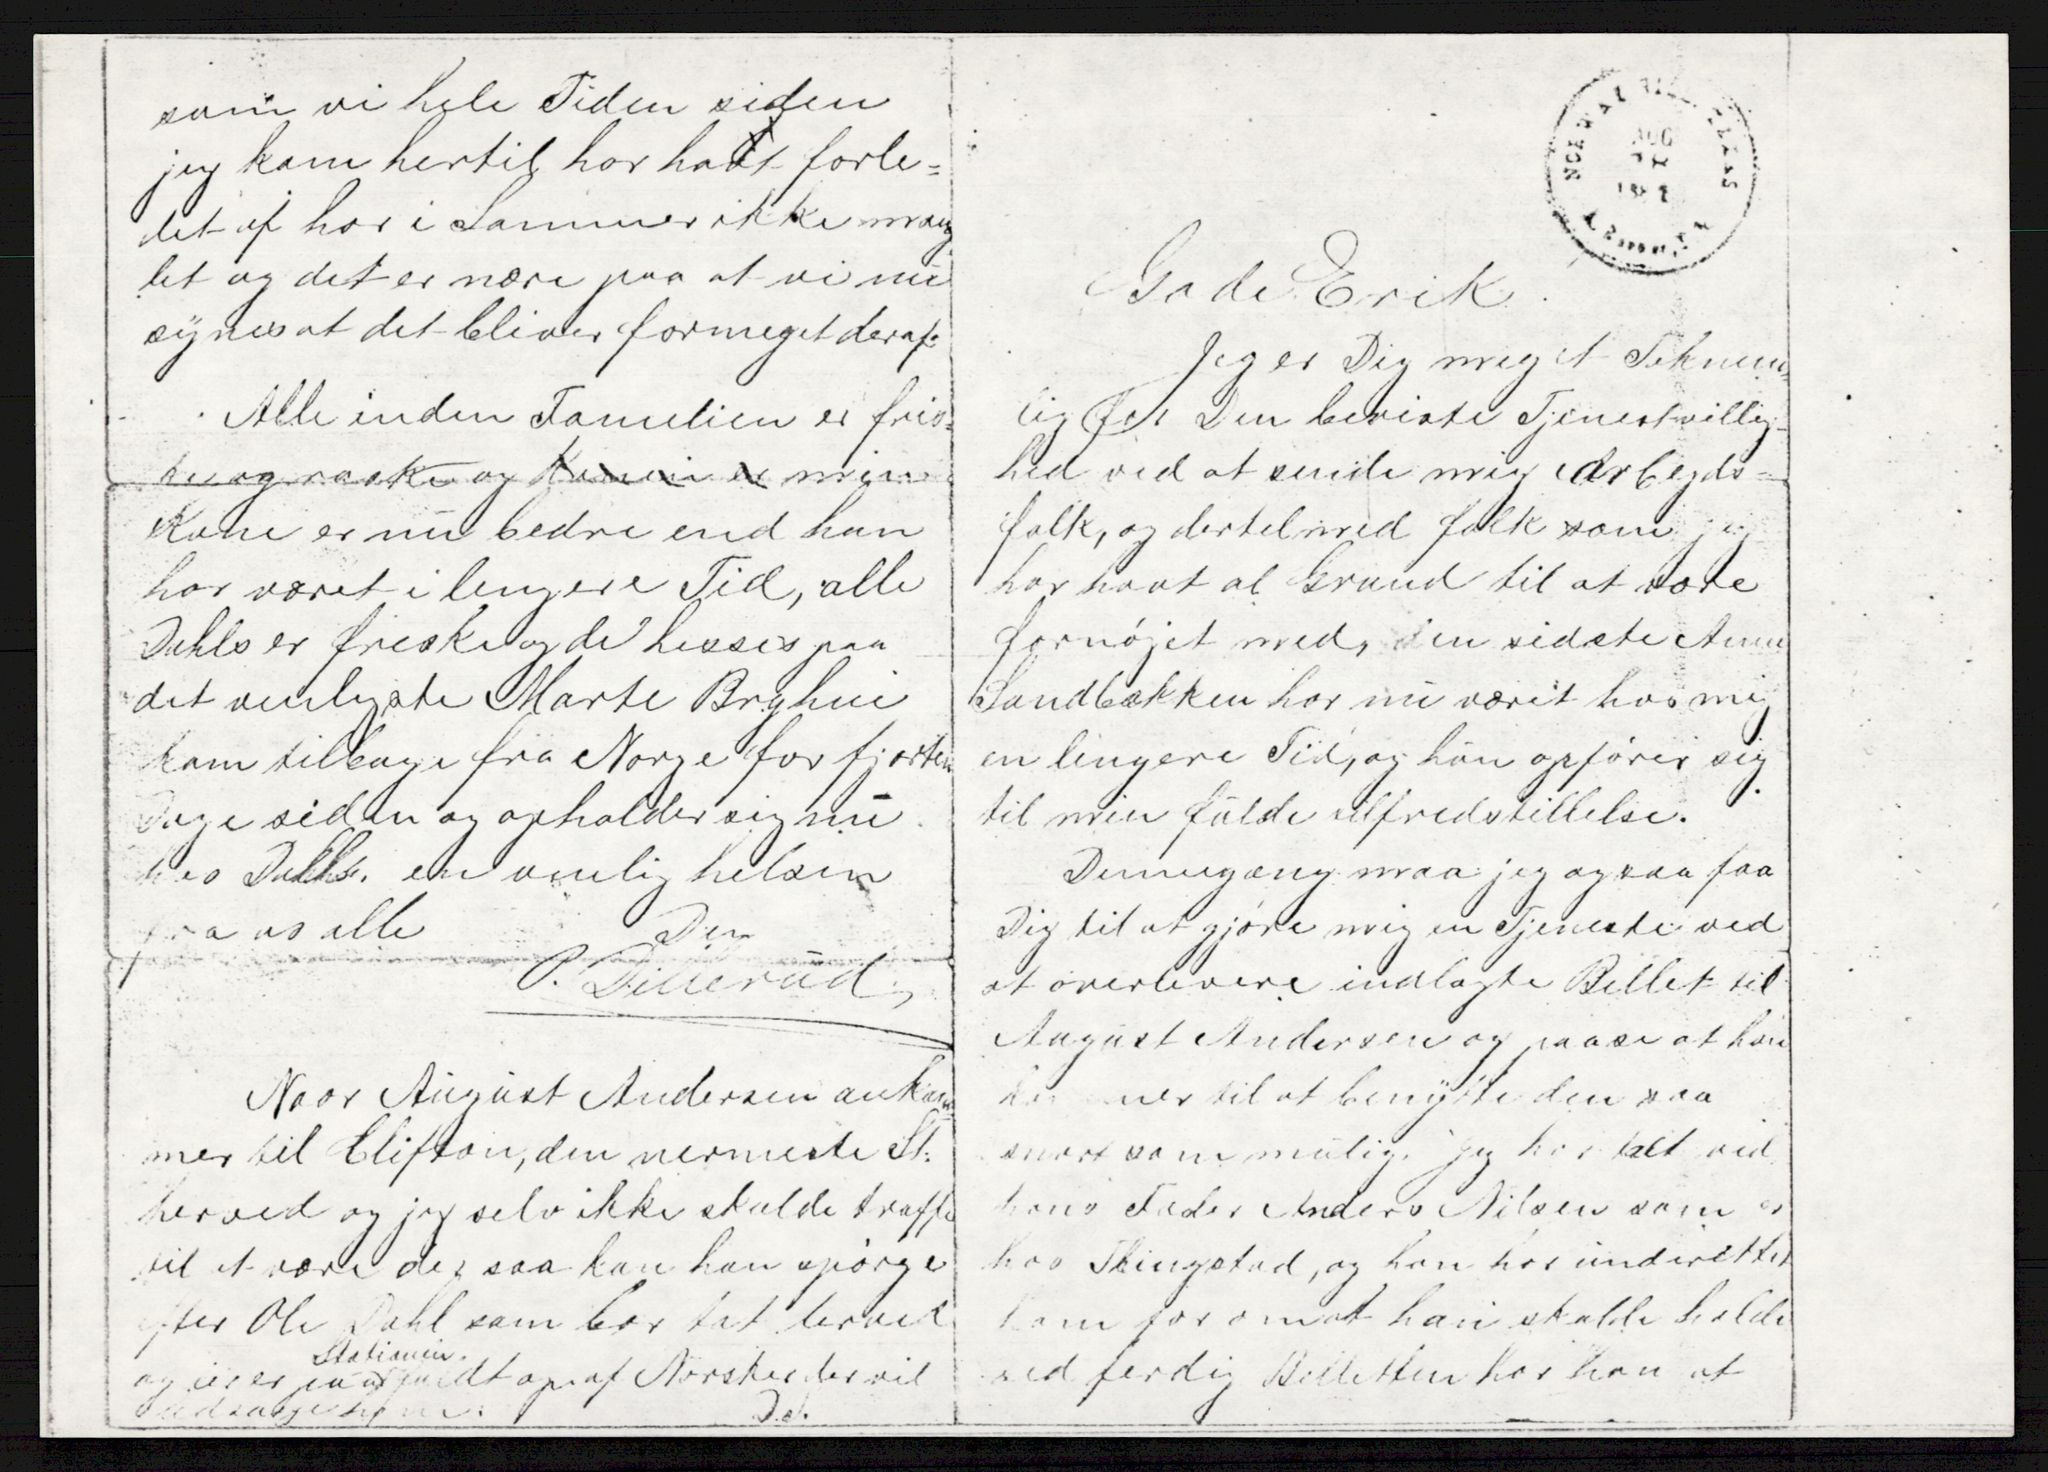 som vi hele Tiden siden
jeg kom hertil har hadt forle=
det af har i Sommer ikke mang
let og det er nære paa at vi nu
synes at det bliver formeget deraf.
Alle inden Familien er fris-
ke og raske og min
Kone er nu bedre end hun
har været i lengere Tid, alle
Dahls er friske og de hesses paa
det venligste Marte Bryhni
kom tilbage fra Norge for fjorten
Dage siden og opholder sig nu
hos Dahls. en venlig helsen
fra os alle Din
P. Dillerud,
Naar August Andersen ankom
mer til Clifton, den nermeste St.
herved og jeg selv ikke skulde træffe
til at være der saa kan han spörge
efter Ole Dahl som bor tæt herved
Stationen.
og der er op af Norsker der vil
D.S.
NORWAY MILL TEXAS
AUG
Gode Erik.
Jeg er Dig meget Teknem=
lig for Den beviste Tjenestvillig-
hed ved at sende mig Arbejds=
folk, og dertil med folk som jeg
har havt al Grund til at være
fornöjet med, den sidste Anne
Sandbakken har nu været hos mig
en lengere Tid, og hun opförer sig
til min fulde tilfredstillelse.
Dennegang maa jeg ogsaa faa
Dig til at gjöre mig en Tjeneste ved
at overlevere indlagte Billet til
August Andersen og paase at han
kommer til at benytte den saa
snart som mulig. Jeg har talt ved
hans Fader Anders Nilsen som er
hos Ringstad, og han har underettet
ham for om at han skulde holde
sed ferdig Billetten har han at